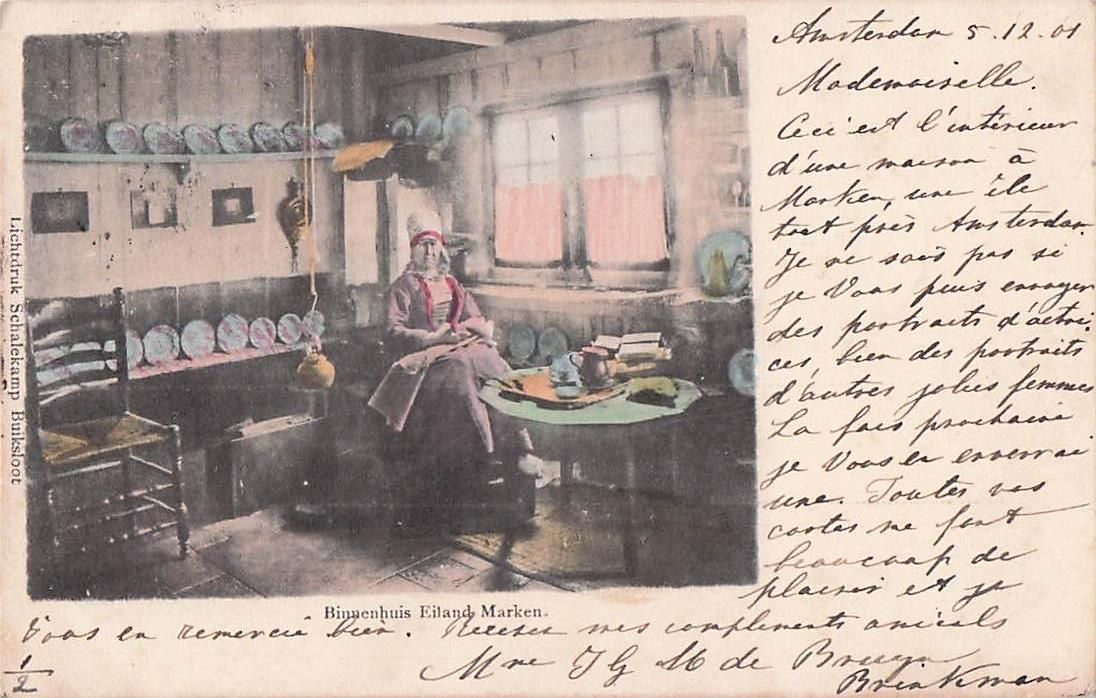 Amsterdam 5.12.01
Mademoiselle.
Ceci est l'intérieur
d'une maison à
Marken, une île
tout près Amsterdam.
Je ne sais pas si
je Vous puis envoyer
des portraits d'actri-
ces, bien des portraits
d'autres jolies femmes
La fois prochaine
je Vous en enverrai
une. Toutes vos
cartes me font
beaucoup de
plaisir et je
Vous en remercie bien. Recevez mes compliments amicals
Mme J G M de Bruyn
Brinkman
1/2
Binnenhuis Eiland Marken.
Lichtdruk Schalekamp Buiksloot